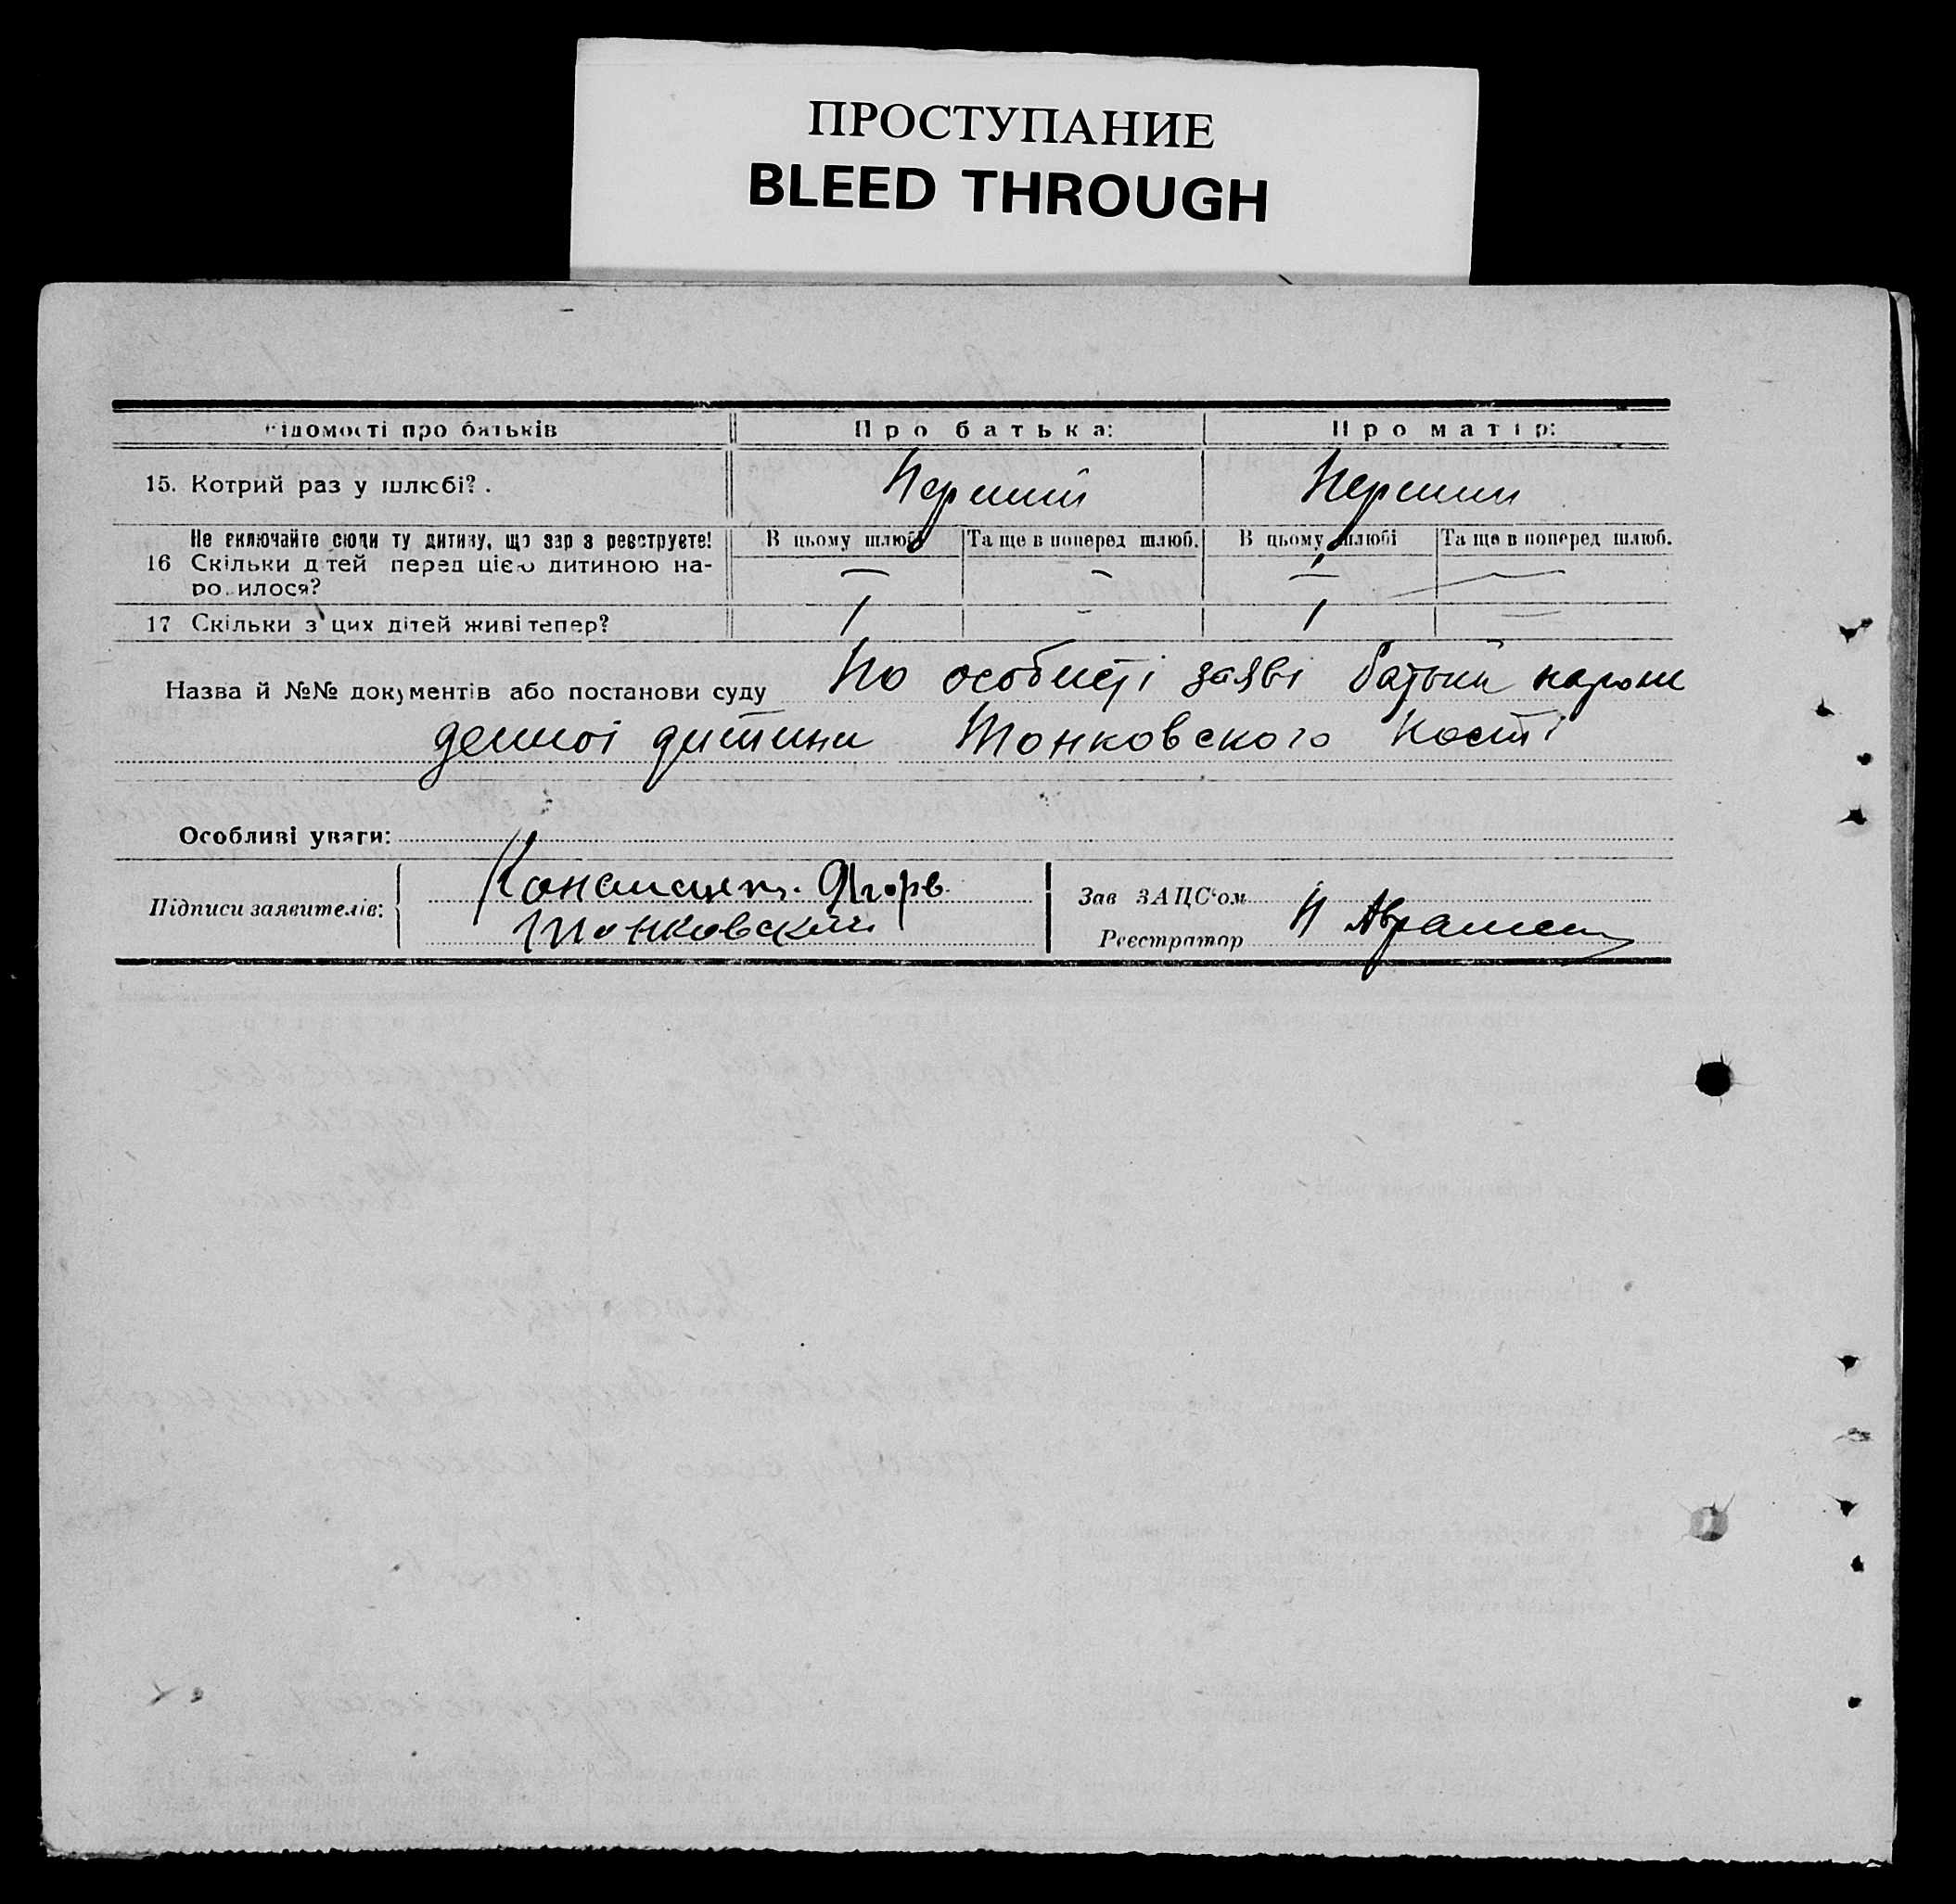 ПРОСТУПАНИЕ
BLEED THROUGH
ідомості про батьків
Про батька:
Про матір:
15. Котрий раз у шлюбі?.
Перший
Перший
Не включайте сюди ту дитину, що зар з реєструєте!
В цьому шлюбі
Та ще в поперед шлюб.
В цьому шлюбі
Та ще в поперед шлюб.
16 Скільки д тей перед цією дитиною на-
ро илося?
— — — —
17 Скільки з цих дітей живі тепер?
1 - 1 —
Назва й №№ документів або постанови суду По особисті заяві батьки народж
деної дитини Тонковского Кості
Особливі уваги:
Підписи заявителів:
Констант.
Тонковский
Зав ЗАЦС‘ом
Реєстратор